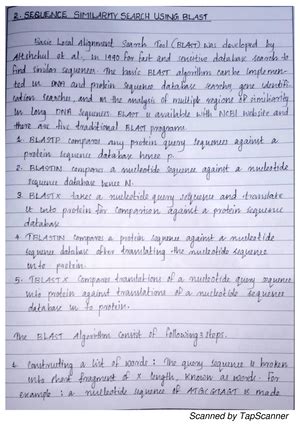 2. SEQUENCE SIMILARITY SEARCH USING BLAST
Basic Local Alignment Search Tool (BLAST) was developed by
Altschul et al. in 1990 for fast and sensitive database search to
find similar sequences. The basic BLAST algorithm can be implemen-
ted in DNA and protein sequence database searches, gene identifi-
cation searches, and in the analysis of multiple regions of similarity
in long DNA sequences. BLAST is available with NCBI website and
there are five traditional BLAST programs
1. BLASTP compares any protein query sequences against a
protein sequence database hence p.
2. BLASTIN compares a nucleotide sequence against a nucleotide
sequence database hence N.
3. BLASTX takes a nucleotide query sequence and translate
it into protein for comparison against a protein sequence
database
4. TBLASTIN compares a protein sequence against a nucleotide
sequence database after translating the nucleotide sequence
into protein.
5. TBLASTX compares translations of a nucleotide query sequence
into protein against translations of a nucleotide sequence
database in to protein.
The BLAST Algorithm consist of following 3 steps.
Constructing a list of words : The query sequence is broken
into short fragment of X length, known as words. For
example : a nucleotide sequence of ATGCGTAGT is made
Scanned by TapScanner